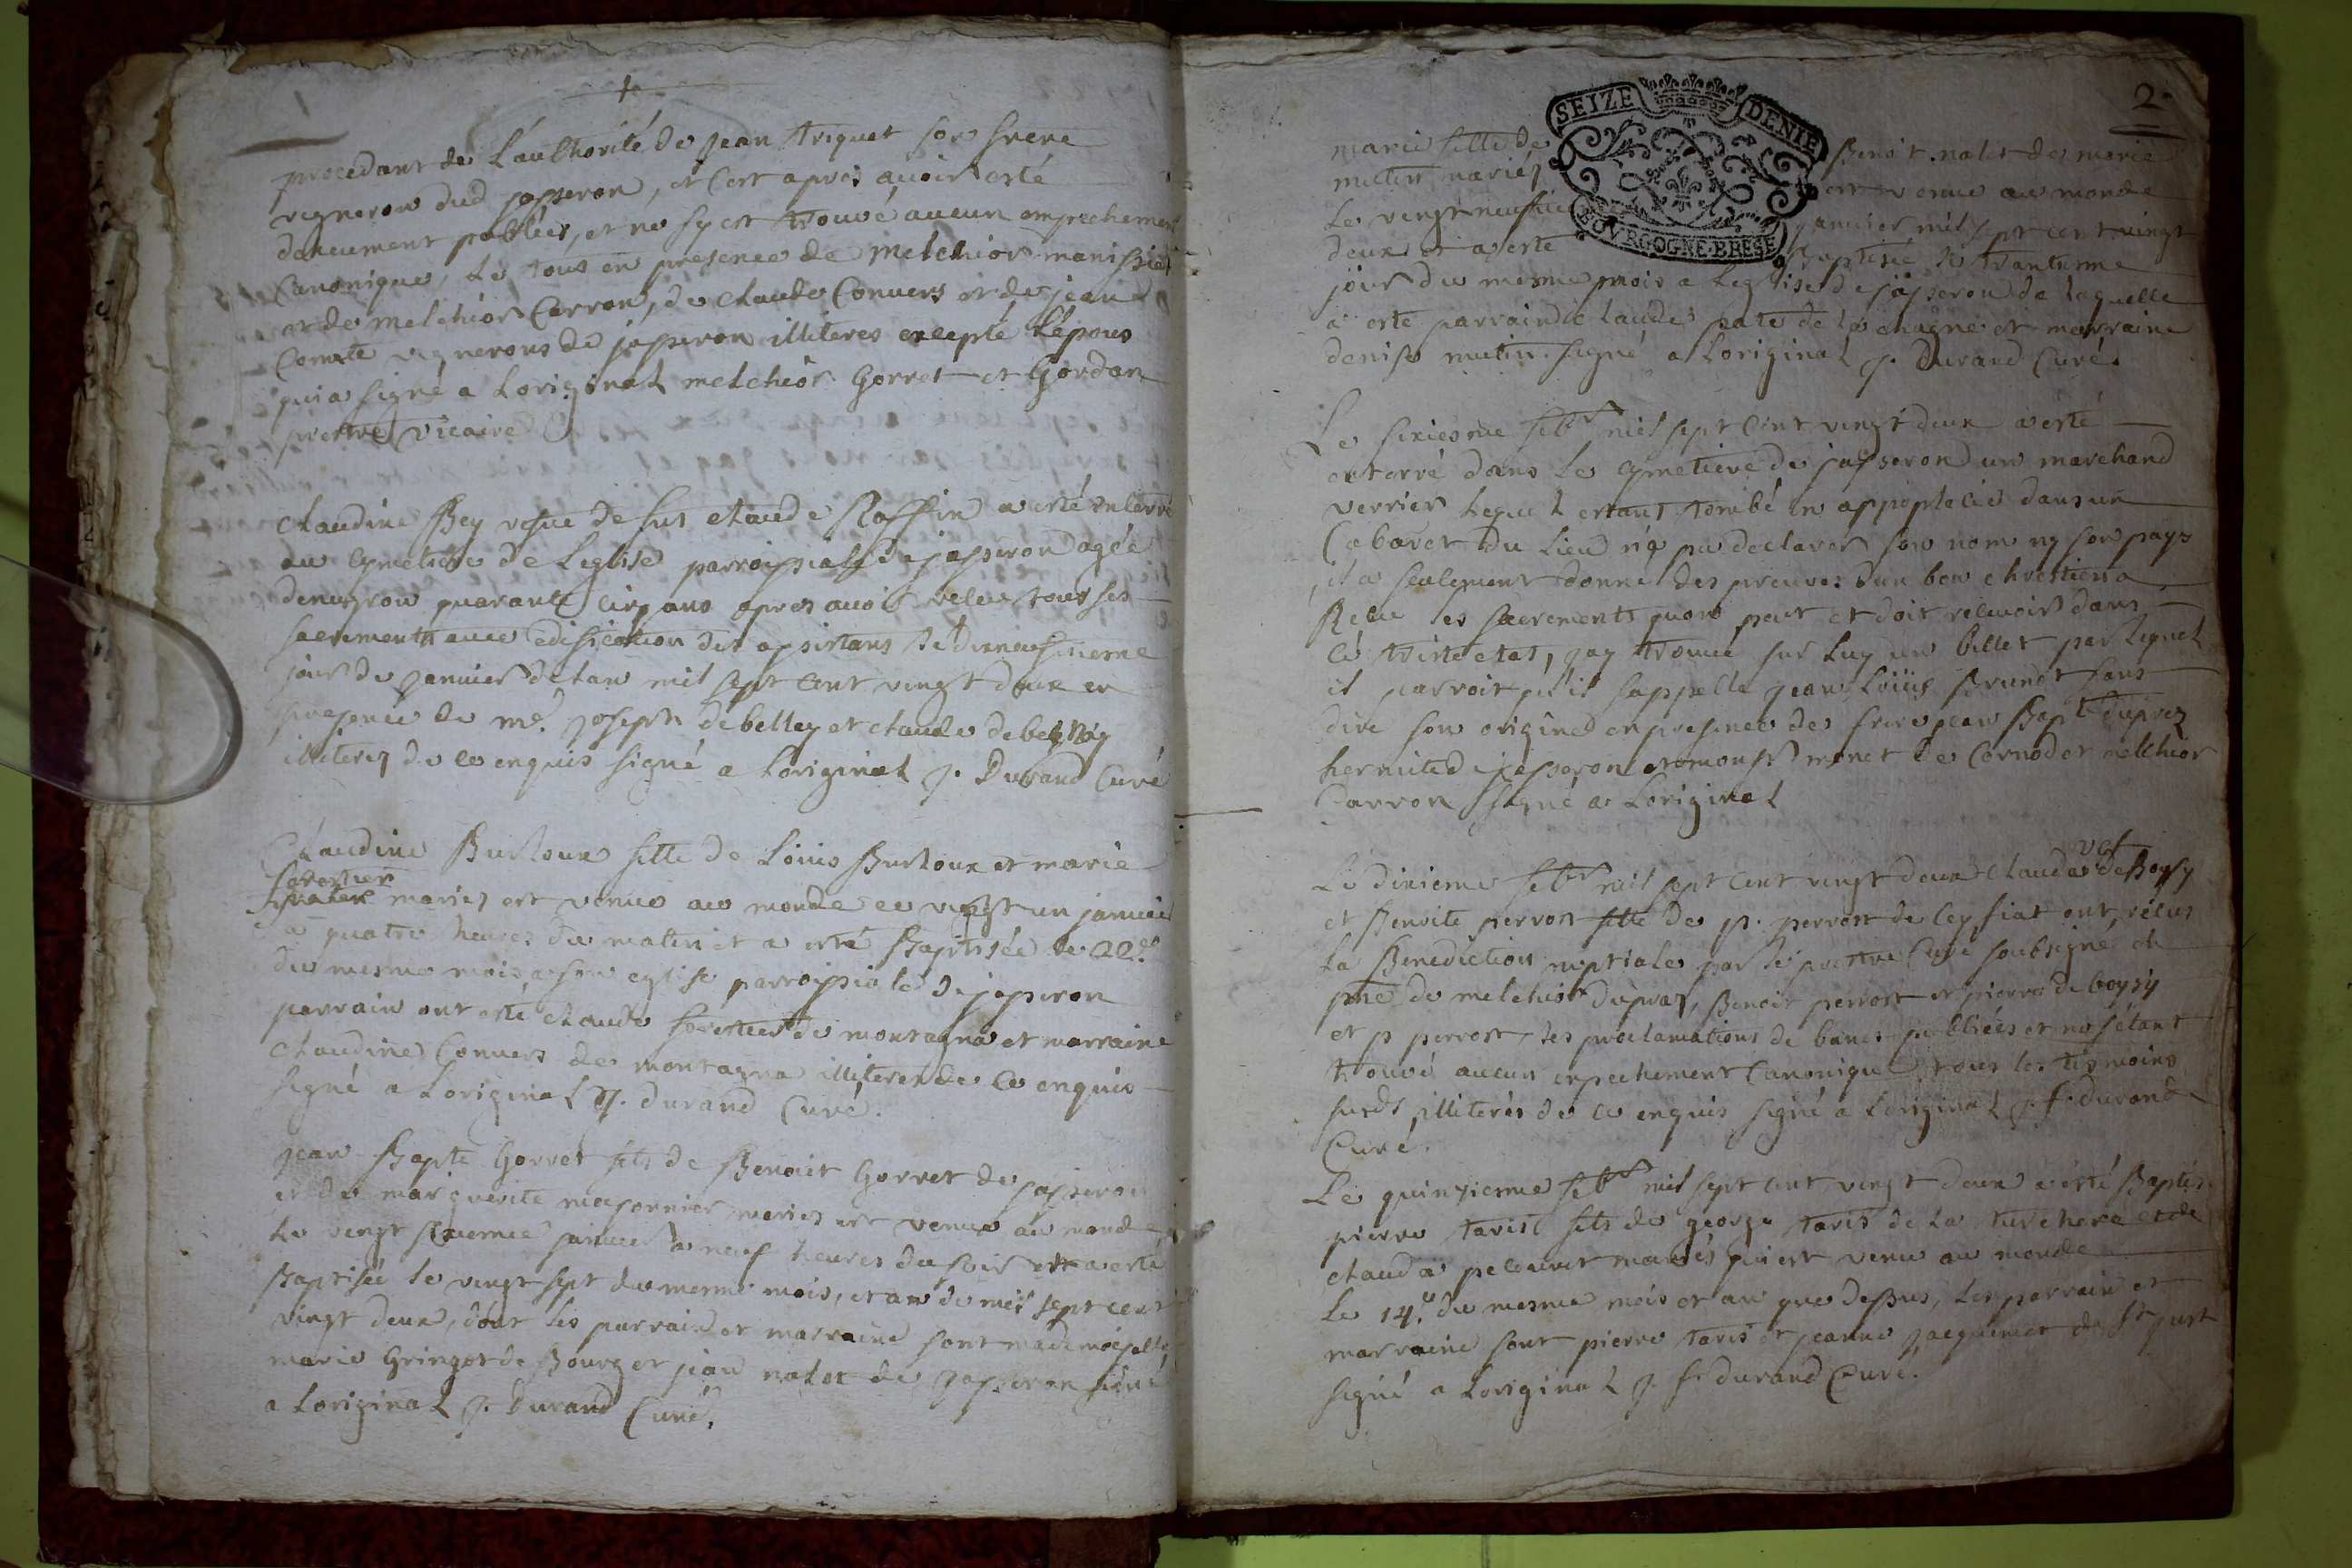 procedant de L'authorité de Jean triquet son frere
vigneron dud jasseron, et c'est apres avoir esté
deuement publiés, et ne sy est trouvé aucun empechement
Canonique, Le tous en presence de melchior
et de melchior Carron, de claude Convers et de jean
Comte vignerons de jasseron illiteres excepté L'epous
qui a signé a Loriginal melchior Gorret et Gordan
prestre vicaire
claudine Bey vefve de fut claude Roffin a esté enterré
au cymetiere de Leglise parroissiale de jasseron agée
denviron quarante cinq ans apres avoir receu tous ses
sacrements avec edification des assistans le dixneufvieme
jour de janvier de lan mil sept cent vingt deux en
presence de me. joseph debelley et claude debelley
illiterez de ce enquis signé a Loriginal J. Durand Curé
Claudine Burtoux fille de Loüis Burtoux et marie
forestier
mariez est venue au monde le vingt un janvier
a quatre heures du matin et a esté Baptisée le 22e
du mesme mois a son eglise parroissiale de jasseron
parrain ont esté claude forestier de montagna et marraine
claudine Convers de montagna illiterez de ce enquis
signé a Loriginal J. durand Curé.
jean Bapte Gorret fils de Benoit Gorret de jasseron
et de marguerite massonnier mariez est venu au monde
le vingt sixieme janvier a neuf heures du soir et a esté
Baptisée le vingt sept du mesme mois, et an de mil sept cent
vingt deux, dont les parrain et marraine sont mademoiselle
marie Gringot de Bourg et jean nalet de jasseron signé
a Loriginal J. Durand Curé,
2
SEIZE DENIE
BOVRGOGNE BRESSE
marie fille de Benoit nalet de marie
mutin mariéz est venue au monde
Le vingt neufvie janvier mil sept cent vingt
deux et a esté Baptisée le trantieme
jour du mesme mois a Leglise de jasseron de laquelle
a esté parrain claude pate de la chagne et marraine
denise mutin signé a Loriginal J. Durand Curé.
Le sixiesme febr mil sept cent vingt deux a esté
enterré dans le cymetiere de jasseron un marchand
verrier lequel estant tombé en appoplecie dans un
Cabaret du Lieu n'a pu declarer son nom ny son pays
il a seulement donné des preuves dun bon chrestien a
Receu les sacrements quon peut et doit recevoir dans
cé triste etat, jay trouvé sur Luy un billet par lequel
il parroit qu'il sappelle jean Loüis Brunet sans
dire son origine en presence de frere jean Bapt duprez
hermite de jasseron et monsr monet de Cornod et melchior
Carron signé a Loriginal
vet
Le dixieme febr mil sept cent vingt deux claude de Boysy
et Benoite perrost fille de p. perrost de Ceyssiat ont reçus
La Benediction nuptiale par le prestre Curé soubsigné en
pnce de melchior dupraz, Benoit perrost et pierre de boysy
et p perrost, les proclamations de bancs publiées et ne s'étant
trouvé aucun enpechement Canonique, tous les tesmoins
susds illiterés de ce enquis signé a Loriginal J. f. durand
Curé.
Le quinziesme febr mil sept cent vingt deux a esté Baptisé
pierre tarist fils de george taris de La et de
claudà mariés qui est venu au monde
Le 14.e du mesme mois et an que dessus, Les parrain et
marraine sont pierre taris et jeanne jacquemet de St just
signé a Loriginal J. f. durand Curé.